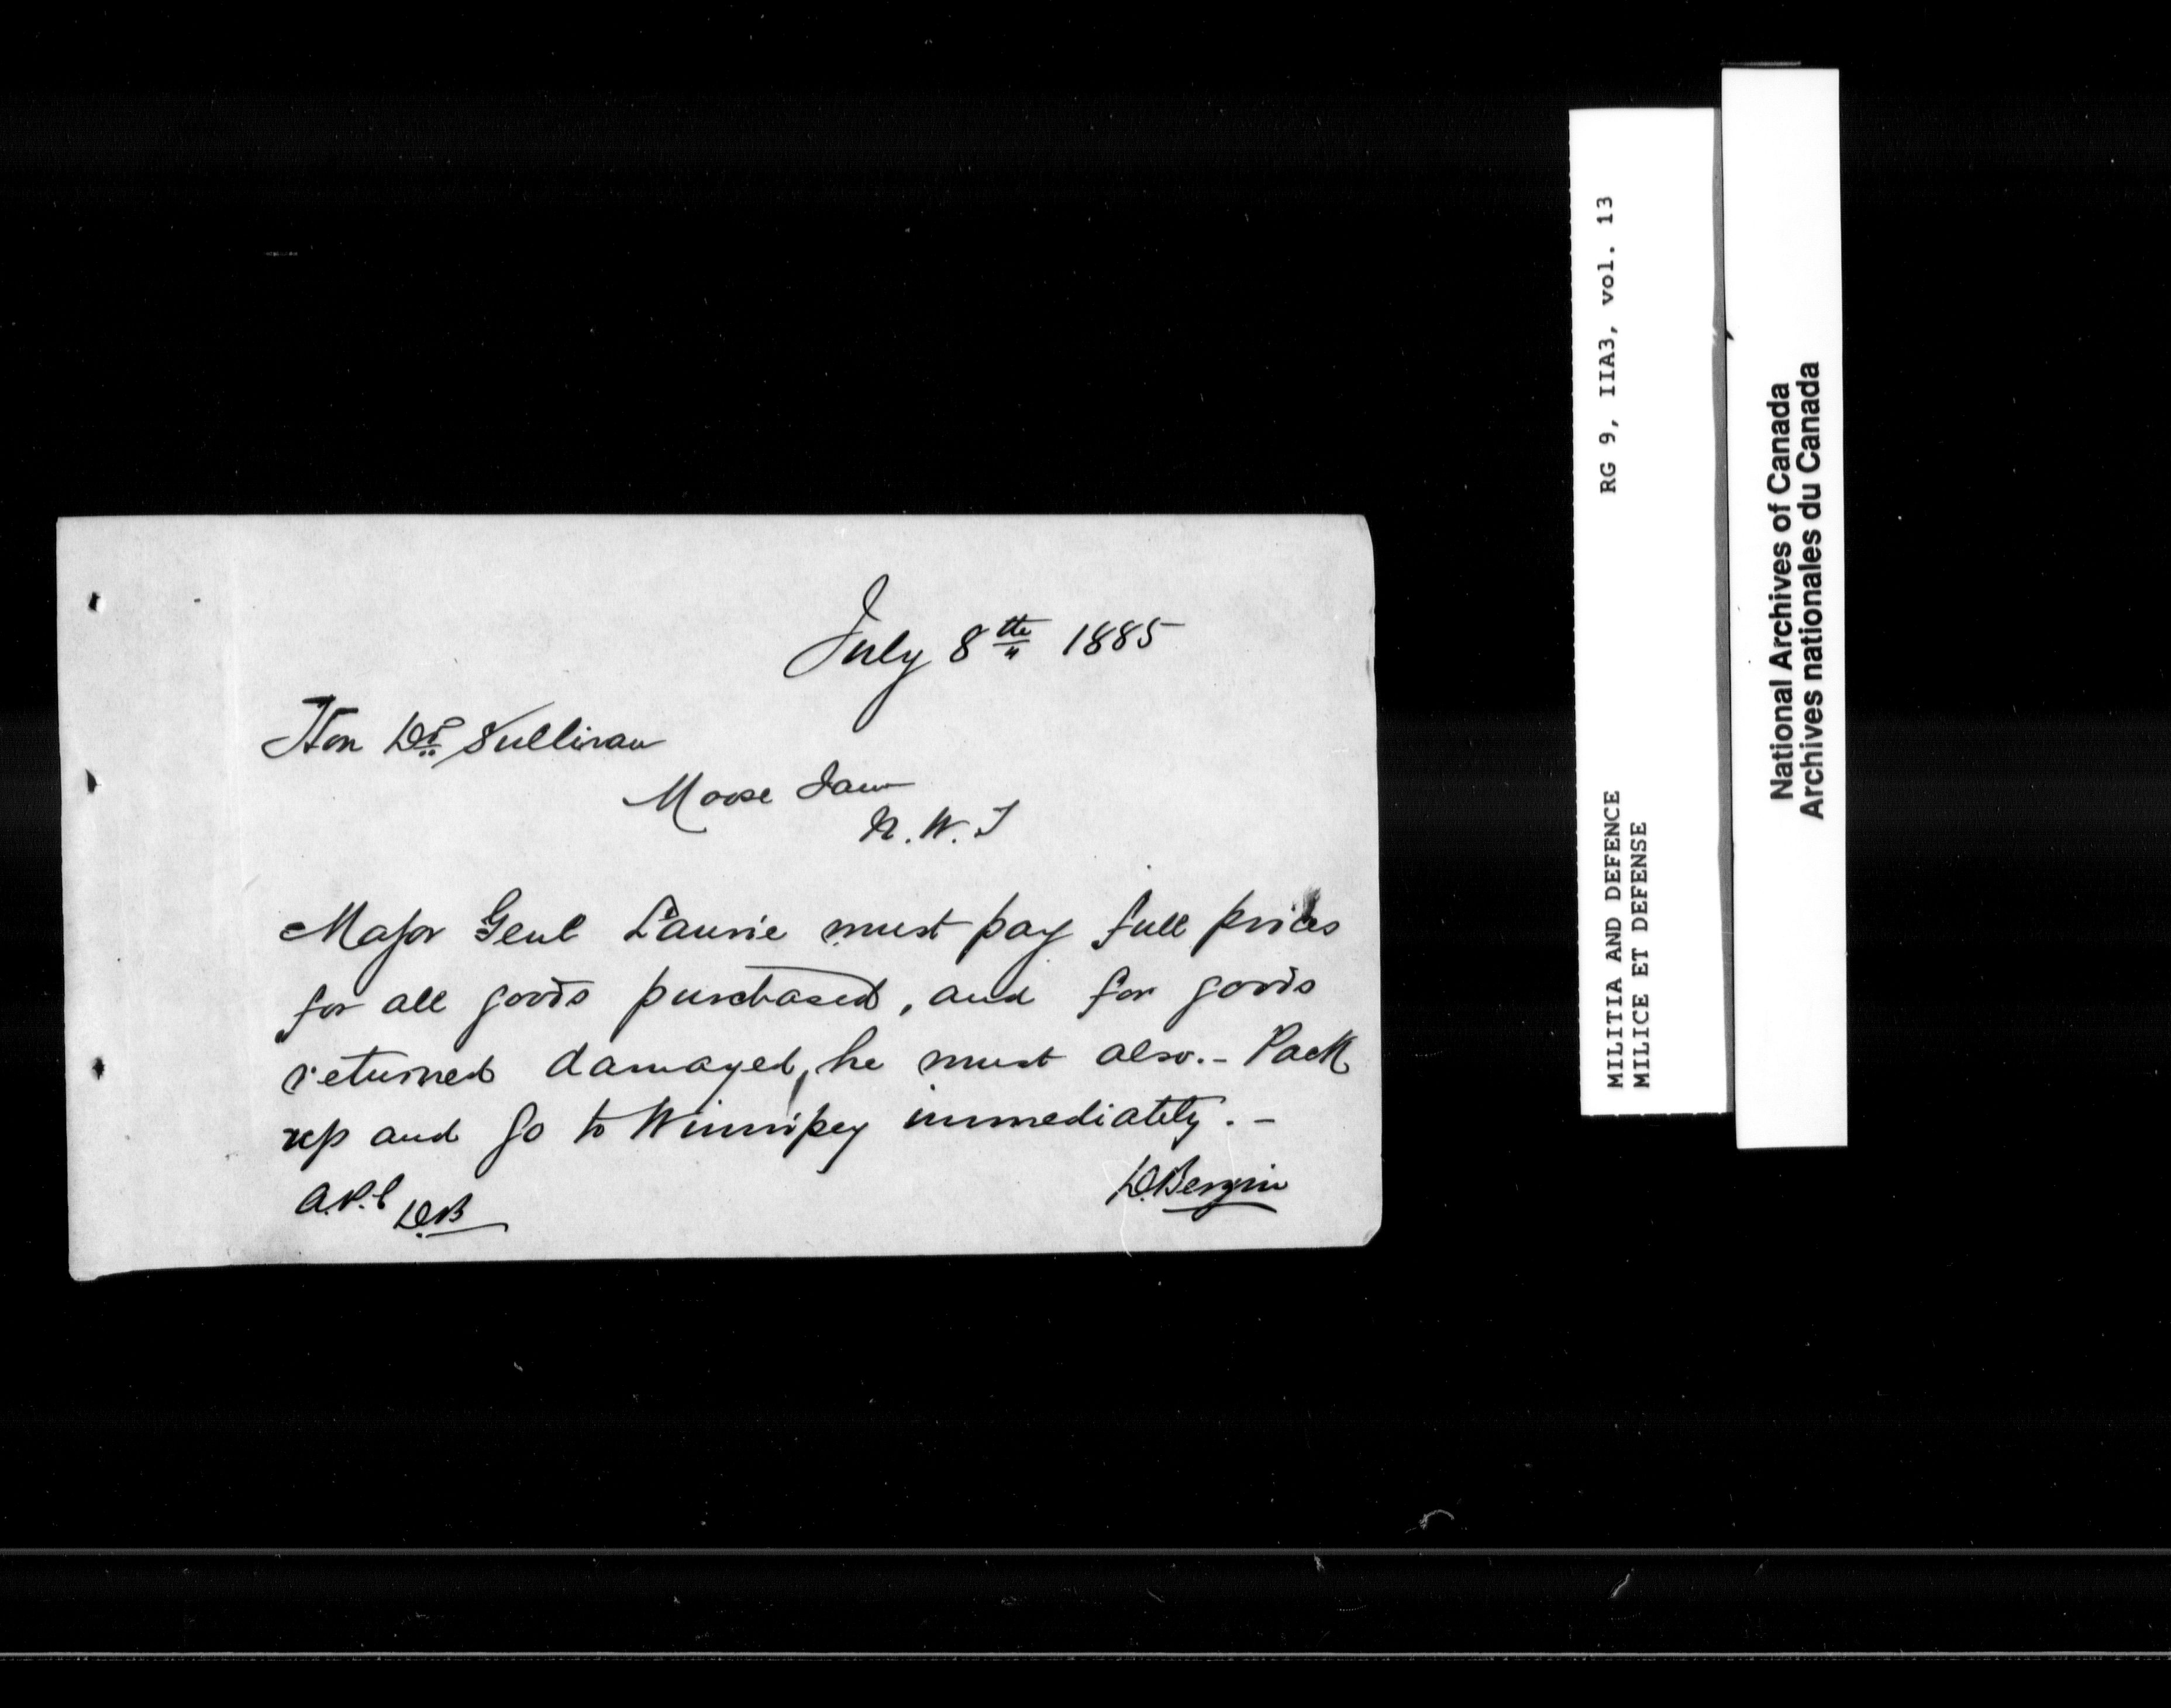 July 8th 1885
Hon Dr. Sullivan
Moose Jaw
N. W. T
Major Genl Laurie must pay full prices
for all goods purchased, and for goods
returned damaged, he must also. - Pack
up and go to Winnipeg immediately. -
D. Bergin
D.B
MILITIA AND DEFENCE RG 9, IIA3, vol. 13
MILICE ET DEFENSE
National Archives of Canada
Archives nationales du Canada